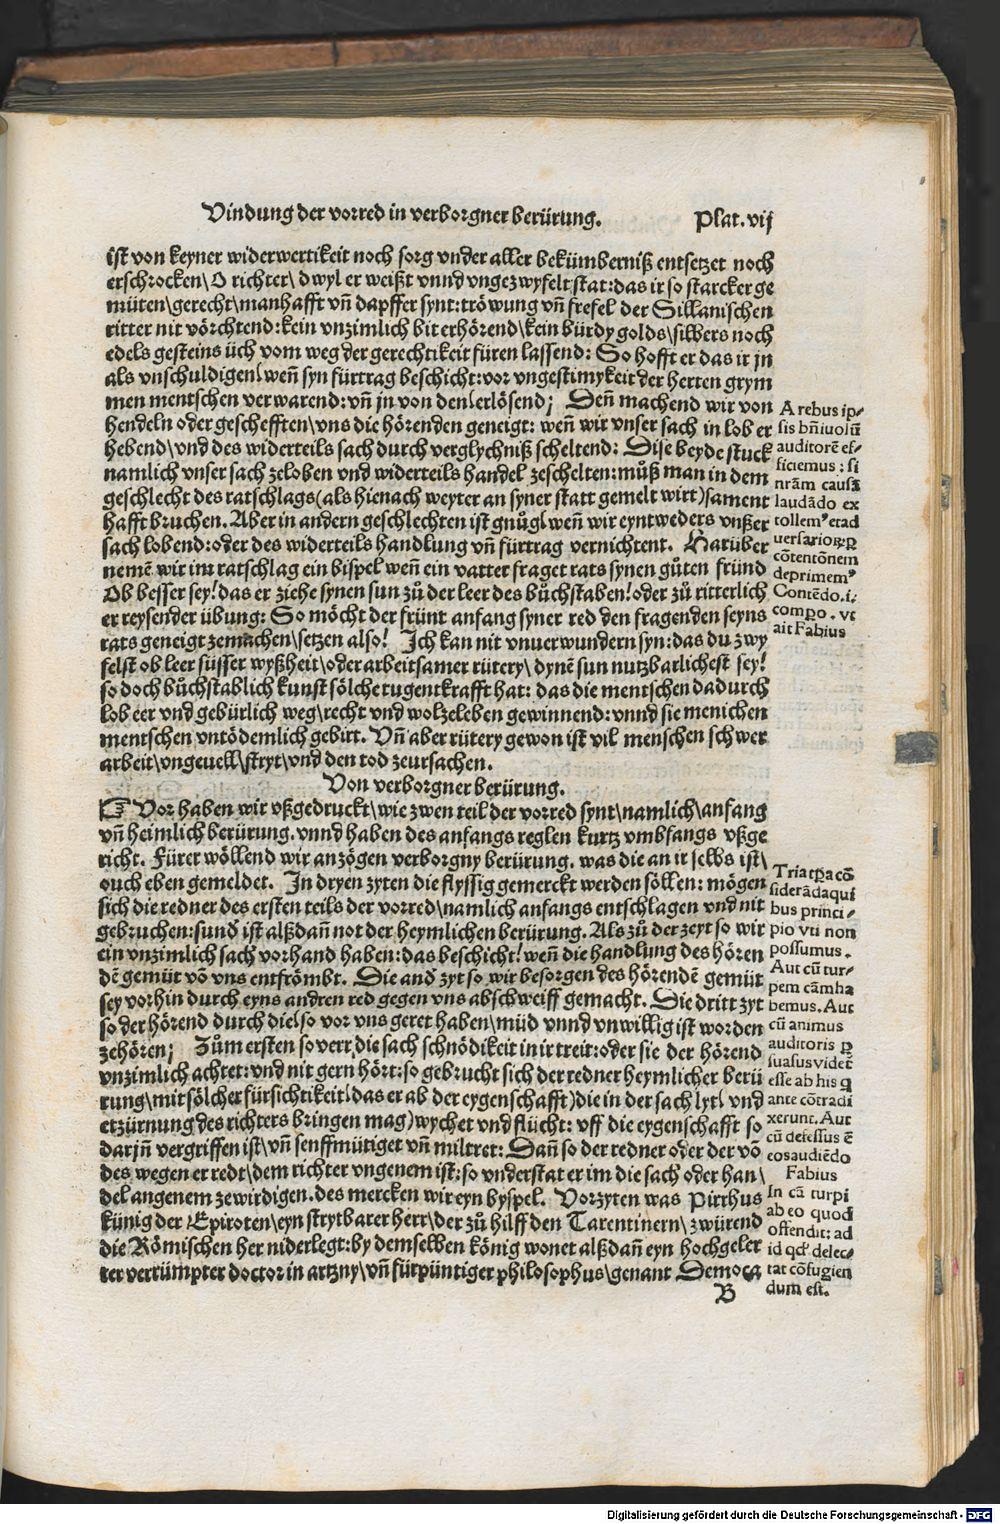 Vindung der vorred in verborgner berürung. Plat. vij
ist von keyner widerwertikeit noch sorg vnder aller bekümberniß entsetzet noch
erschrocken\ O richter\ dwyl er weißt vnnd vngezwyfelt stat: das ir so starcker ge
müten\ gerecht\ manhafft vn̄ dapffer synt: tröwung vn̄ frefel der Sillanischen
ritter nit vörchtend: kein vnzimlich bit erhörend\ kein bürdy golds\ silbers noch
edels gesteins üch vom weg der gerechtikeit füren lassend: So hofft er das ir jn
als vnschuldigen( wen̄ syn fürtrag beschicht: vor vngestimykeit der herten grym
men mentschen verwarend: vn̄ jn von den( erlösend; Den̄ machend wir von
hendeln oder geschefften\ vns die hörenden geneigt: wen̄ wir vnser sach in lob er
hebend\ vnd des widerteils sach durch verglychniß scheltend: Dise beyde stuck
namlich vnser sach zeloben vnd widerteils handel zeschelten: můß man in dem
geschlecht des ratschlags (als hienach weyter an syner statt gemelt wirt) sament
hafft bruchen. Aber in andern geschlechten ist gnůg( wen̄ wir eyntweders vnßer
sach lobend: oder des widerteils handlung vn̄ fürtrag vernichtent. Harüber
nemē wir im ratschlag ein bispel wen̄ ein vatter fraget rats synen gůten fründ
Ob besser sey! das er ziehe synen sun zů der leer des bůchstaben! oder zů ritterlich
er reysender übung: So möcht der frünt anfang syner red den fragenden seyns
rats geneigt zemachen\ setzen also! Ich kan nit vnuerwundern syn: das du zwy
felst ob leer süsser wyßheit\ oder arbeitsamer rütery\ dynē sun nutzbarlichest sey!
so doch bůchstablich kunst sölche tugentkrafft hat: das die mentschen dadurch
lob eer vnd gebürlich weg\ recht vnd wolzeleben gewinnend: vnnd sie menichen
mentschen vntödemlich gebirt. Vn̄ aber rütery gewon ist vil menschen schwer
arbeit\ vngeuell\ stryt\ vnd den tod zeursachen.
Von verborgner berürung.
☞ Vor haben wir vßgedruckt\ wie zwen teil der vorred synt\ namlich\ anfang
vn̄ heimlich berürung. vnnd haben des anfangs reglen kurtz vmbfangs vßge
richt. Fürer wöllend wir anzögen verborgny berürung. was die an ir selbs ist\
ouch eben gemeldet. In dryen zyten die flyssig gemerckt werden söllen: mögen
sich die redner des ersten teils der vorred\ namlich anfangs entschlagen vnd nit
gebruchen: sund̄ ist alßdan̄ not der heymlichen berürung. Als zů der zeyt so wir
ein vnzimlich sach vorhand haben: das beschicht! wen̄ die handlung des hören
dē gemüt vō vns entfrömbt. Die and̄ zyt so wir besorgen des hörendē gemüt
sey vorhin durch eyns andren red gegen vns abschweiff gemacht. Die dritt zyt
so der hörend durch die( so vor vns geret haben\ müd vnnd vnwillig ist worden
zehören; Zům ersten so verr, die sach schnödikeit in ir treit: oder sie der hörend
vnzimlich achtet: vnd nit gern hört: so gebrucht sich der redner heymlicher berü
rung\ mit sölcher fürsichtikeit( das er ab der eygenschafft) die in der sach lyt( vnd
etzürnung des richters bringen mag) wychet vnd flücht: vff die eygenschafft so
darjn̄ vergriffen ist\ vn̄ senffmütiget vn̄ miltret: Dan̄ so der redner oder der vō
des wegen er redt\ dem richter vngenem ist: so vnderstat er im die sach oder han\
del angenem zewirdigen. des mercken wir eyn byspel. Vorzyten was Pirrhus
künig der Epiroten\ eyn strytbarer herr\ der zů hilff den Tarentinern\ zwürend
die Römischen her niderlegt: by demselben könig wonet alßdan̄ eyn hochgeler
ter verrümpter doctor in artzny\ vn̄ fürpüntiger philosophus\ genant Democa
B
A rebus ip⸗
sis bn̄iuolū
auditorē ef⸗
ficiemus: si
nrām causā
laudādo ex
tollemꝰ et ad
uersarioꝝ ꝑ
cōtentōnem
deprimemꝰ
Contēdo. i.
compo. vt
ait Fabius
Tria tp̄a cō
siderāda qui
bus princi⸗
pio vti non
possumus.
Aut cū tur⸗
pem cām ha
bemus. Aut
cū animus
auditoris ꝑ
suasus videt̄
esse ab his q
ante cōtradi
xerunt. Aut
cū defessus ē
eos audiēdo
Fabius
In cā turpi
ab eo quod
offendit: ad
id qd̄ delec⸗
tat cōfugien
dum est.
Digitalisierung gefördert durch die Deutsche Forschungsgemeinschaft - DFG